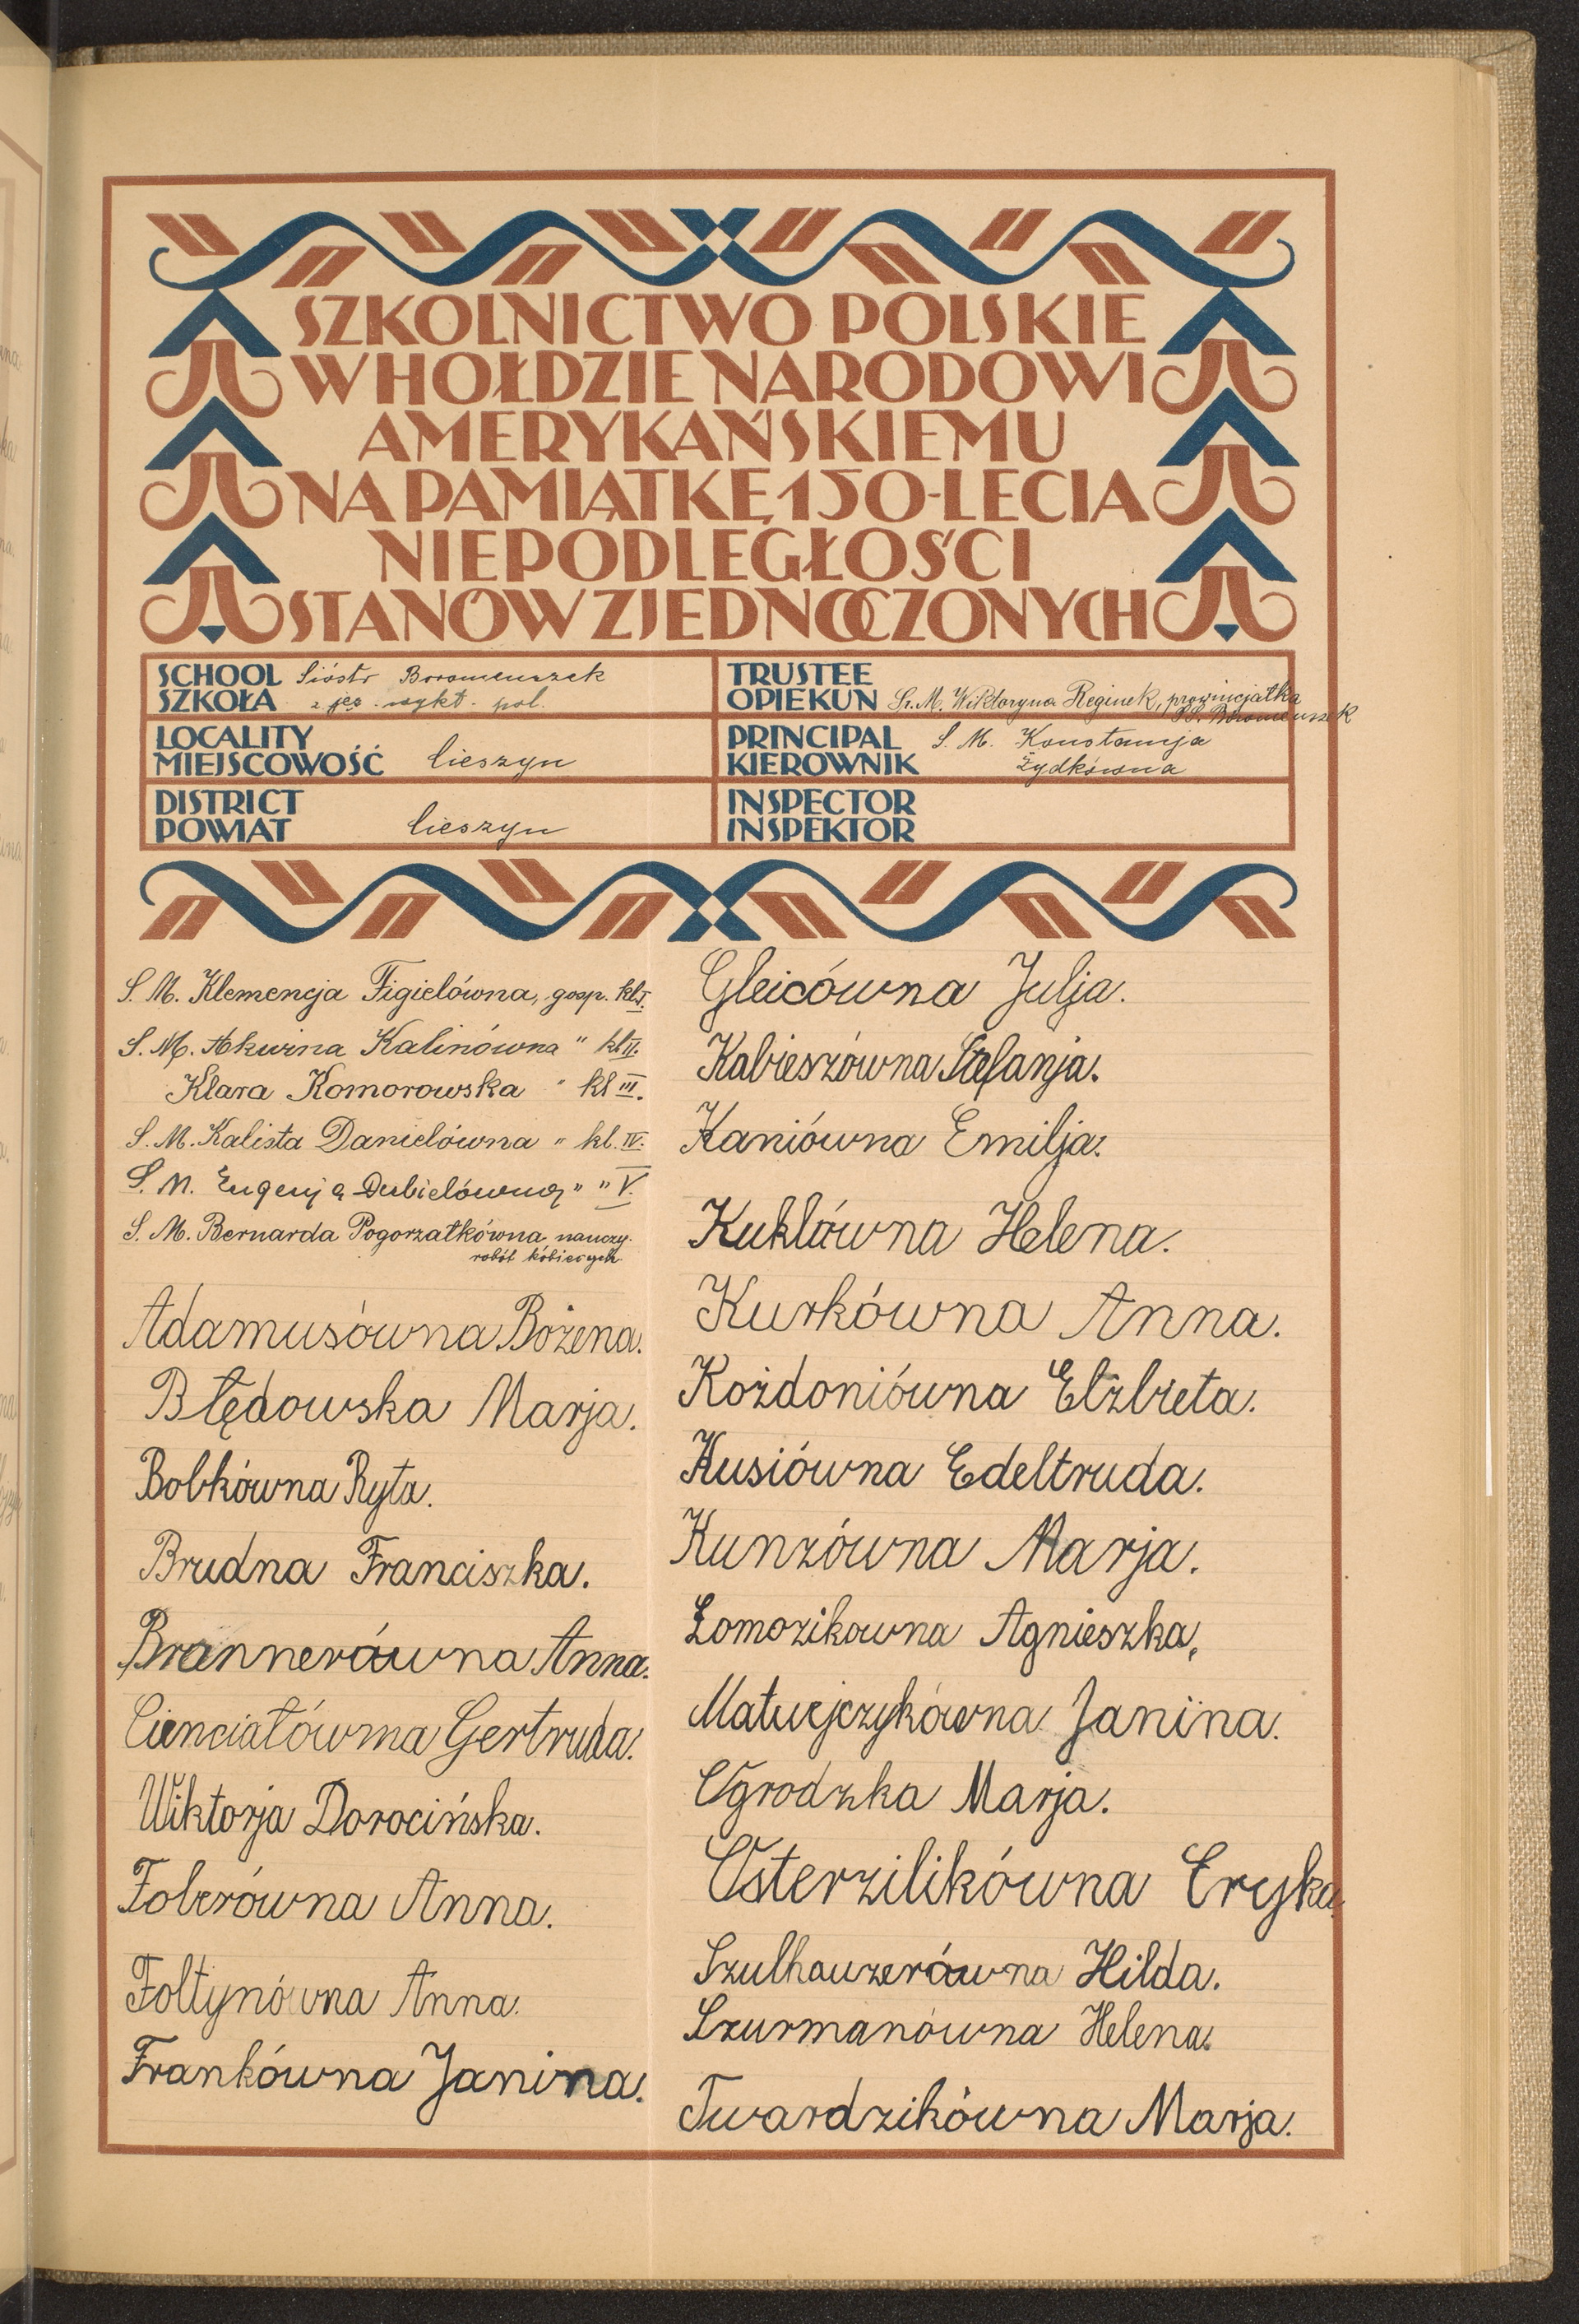 SZKOLNICTWO POLSKIE
W HOŁDZIE NARODOWI
AMERYKAŃSKIEMU
NA PAMIĄTKĘ 150-LECIA
NIEPODLEGŁOŚCI
STANÓW ZJEDNOCZONYCH
SCHOOL
SZKOŁA
Sióstr Boromeuszek
z jęz. wykł. pol.
TRUSTEE
OPIEKUN S. M. Wiktoryna Reginek, prowincjałka
SS. Boromeuszek
LOCALITY
MIEJSCOWOŚĆ Cieszyn
PRINCIPAL
KIEROWNIK
S. M. Konstancja
Żydkówna
DISTRICT
POWIAT Cieszyn
INSPECTOR
INSPEKTOR
S. M. Klemencja Figielówna, gosp. kl I.
S. M. Akwina Kalinówna " kl II.
Klara Komorowska " kl III.
S. M. Kalista Danielówna " kl. IV.
S. M. Eugenja Dubielówna " " V.
S. M. Bernarda Pogorzałkówna, nauczy.
robót kobiecych
Adamusówna Bożena.
Błędowska Marja.
Bobkówna Ryta.
Brudna Franciszka.
Brannerówna Anna.
Cienciałówna Gertruda.
Wiktorja Dorocińska.
Folerówna Anna.
Foltynówna Anna.
Frankówna Janina.
Gleicówna Julja.
Kabieszówna Stefanja.
Kaniówna Emilja.
Kuklówna Helena.
Kurkówna Anna.
Kożdoniówna Elżbieta.
Kusiówna Edeltruda.
Kunzówna Marja.
Łomozikowna Agnieszka,
Matuejczykówna Janina.
Ogrodzka Marja.
Osterzilikówna Eryka
Szulhauzerówna Hilda.
Szurmanówna Helena.
Twardzikówna Marja.